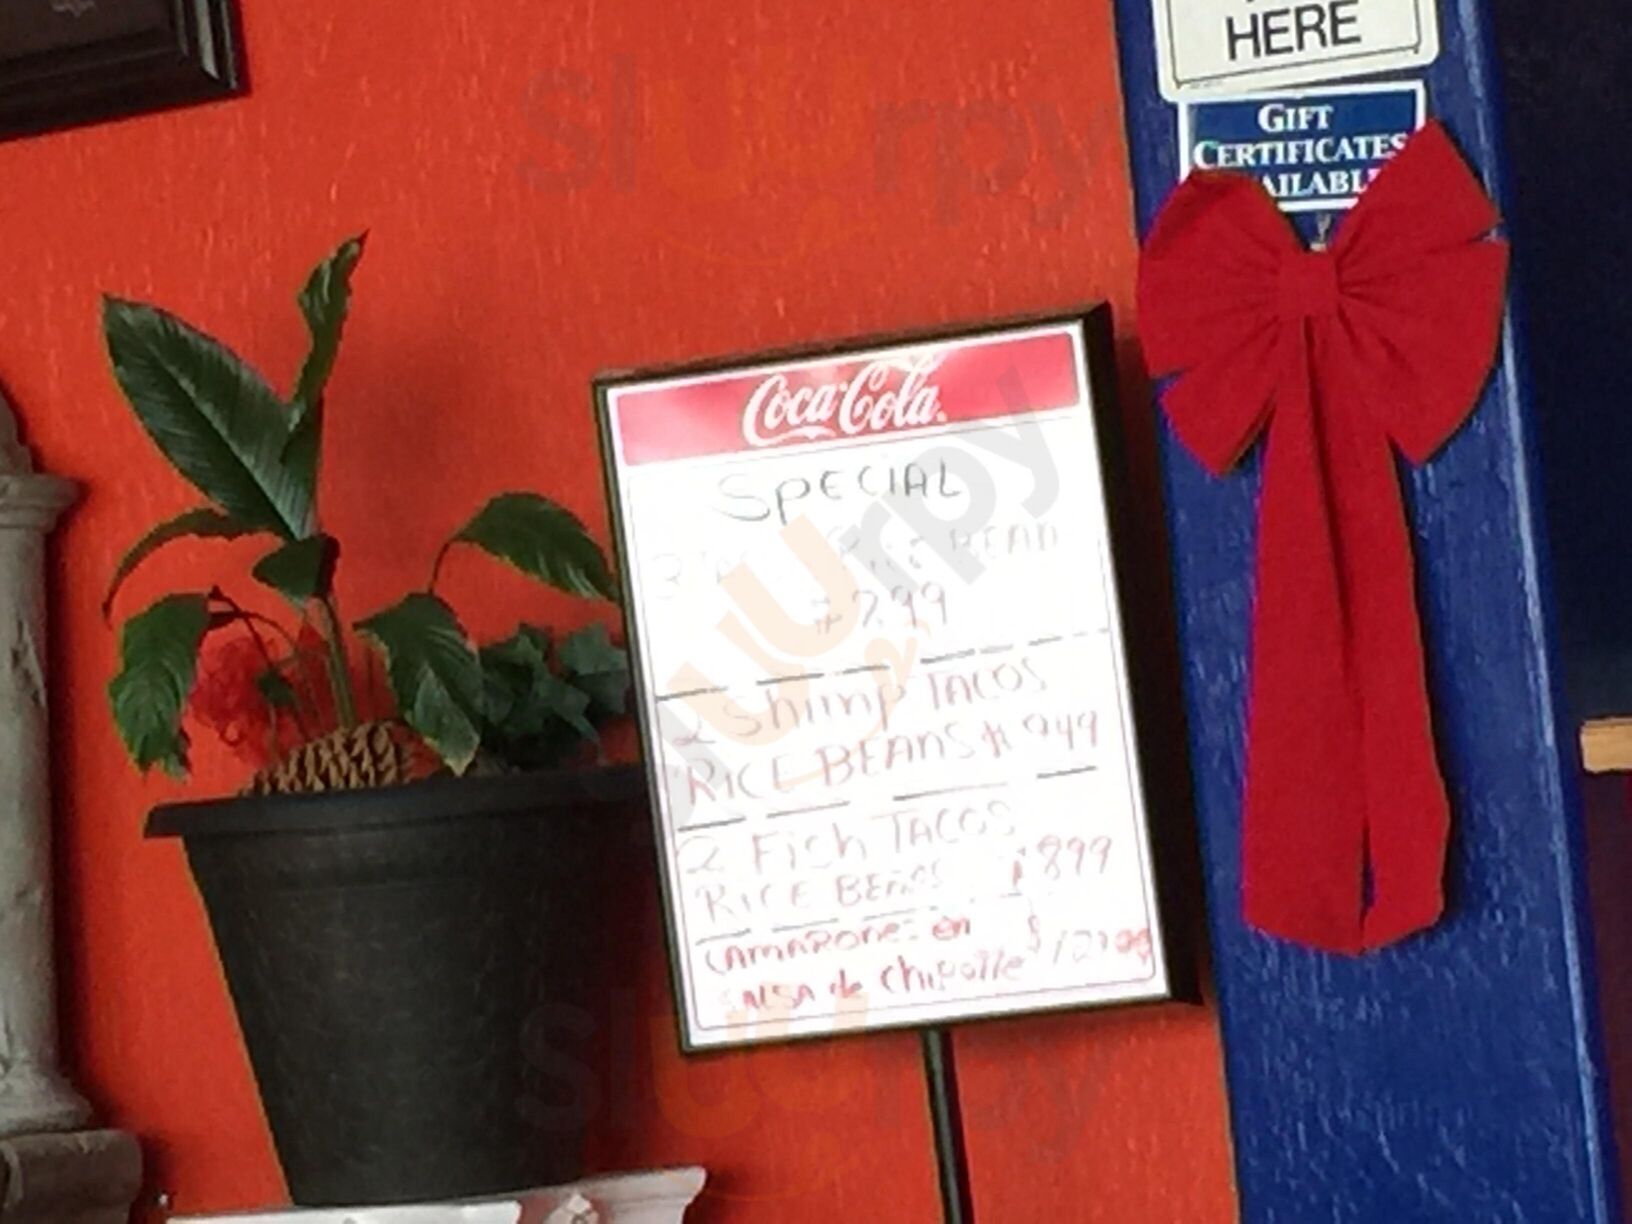 HERE
GIFT
CERTIFICATES
AILABL
Coca-Cola
SPECIAL
3 RICE BEAN
$7.99
2 Shimp TACOS
RICE BEANS $ 949
2 Fish TACOS
RICE BEANS $899
CAMARONES en $12.99
SALSA de Chipotle
slurpy
slurpy
slurpy